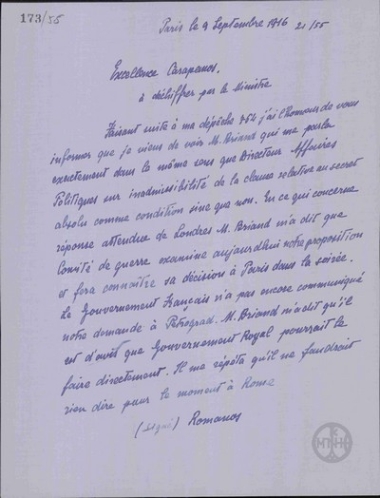 173/55
Paris le 9 Septembre 1916 21/55
Excellence Carapanos,
à déchiffrer par le Ministre
Faisant suite à ma dépêche 854 j'ai l'honneur de vous
informer que je viens de voir M. Briand qui me parla
exactement dans le même sens que Directeur Affaires
Politiques sur inadmissibilité de la clause relative au secret
absolu comme condition sine qua non. En ce qui concerne
réponse attendue de Londres M. Briand m'a dit que
Comité de guerre examine aujourd'hui notre proposition
et fera connaître sa décision à Paris dans la soirée.
Le Gouvernement Français n'a pas encore communiqué
notre demande à Pétrograd. M. Briand m'a dit qu'il
est d'avis que Gouvernement Royal pourrait le
faire directement. Il me répéta qu'il ne faudrait
rien dire pour le moment à Rome
(signé) Romanos